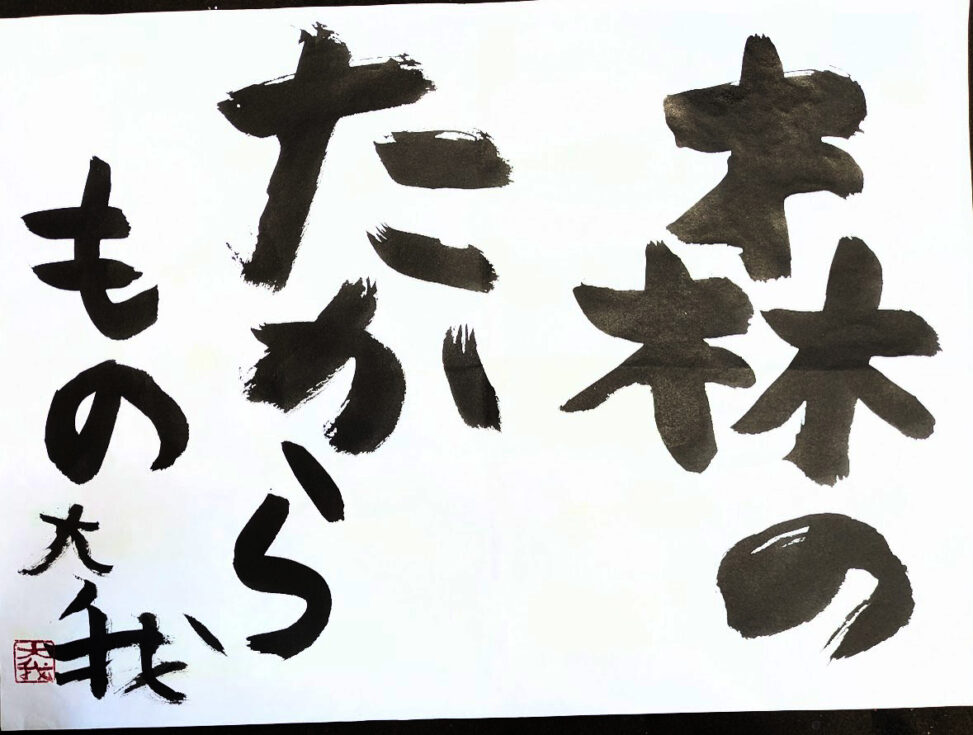 森の
たから
もの
大我
大我